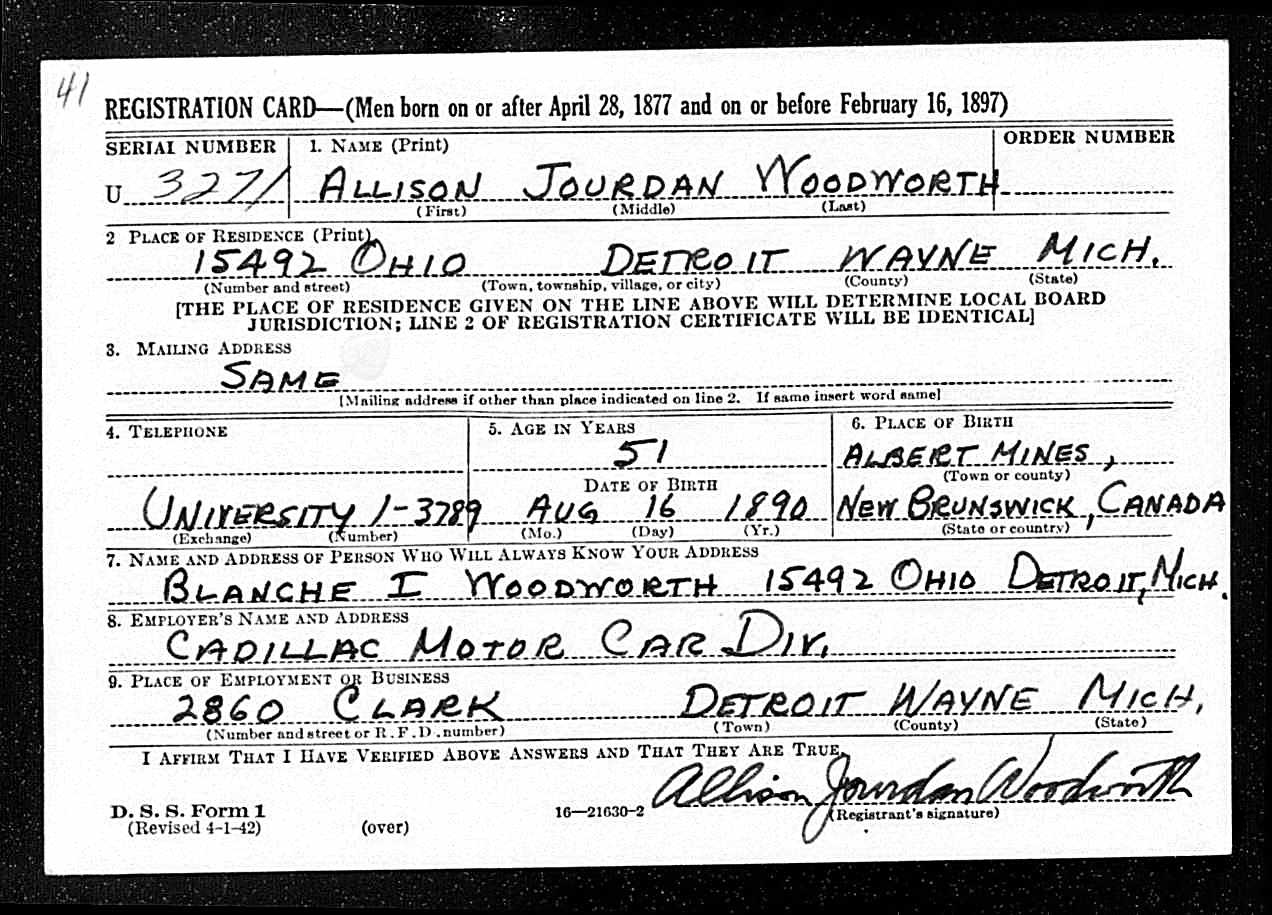 41
REGISTRATION CARD—(Men born on or after April 28, 1877 and on or before February 16, 1897)
SERIAL NUMBER 1. NAME (Print) ORDER NUMBER
U 3271 ALLISON JOURDAN WOODWORTH
(First) (Middle) (Last)
2 PLACE OF RESIDENCE (Print)
15492 OHIO DETROIT WAYNE MICH.
(Number and street) (Town, township, village, or city) (County) (State)
[THE PLACE OF RESIDENCE GIVEN ON THE LINE ABOVE WILL DETERMINE LOCAL BOARD
JURISDICTION; LINE 2 OF REGISTRATION CERTIFICATE WILL BE IDENTICAL]
3. MAILING ADDRESS
SAME
[Mailing address if other than place indicated on line 2. If same insert word same]
4. TELEPHONE 5. AGE IN YEARS 6. PLACE OF BIRTH
51 ALBERT MINES,
(Town or county)
DATE OF BIRTH
UNIVERSITY 1-3789 AUG 16 1890 NEW BRUNSWICK, CANADA
(Exchange) (Number) (Mo.) (Day) (Yr.) (State or country)
7. NAME AND ADDRESS OF PERSON WHO WILL ALWAYS KNOW YOUR ADDRESS
BLANCHE I WOODWORTH 15492 OHIO DETROIT, MICH.
8. EMPLOYER'S NAME AND ADDRESS
CADILLAC MOTOR CAR DIV.
9. PLACE OF EMPLOYMENT OR BUSINESS
2860 CLARK DETROIT WAYNE MICH.
(Number and street or R. F. D. number) (Town) (County) (State)
I AFFIRM THAT I HAVE VERIFIED ABOVE ANSWERS AND THAT THEY ARE TRUE.
Allison Jourdan Woodworth
D. S. S. Form 1 16—21630-2 (Registrant's signature)
(Revised 4-1-42) (over)